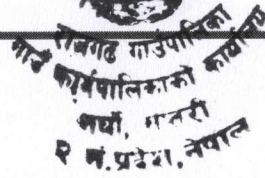 राजगढ गाउँपालिका
गाउँ कार्यपालिकाको कार्यालय
सप्तरी
२ नं. प्रदेश, नेपाल